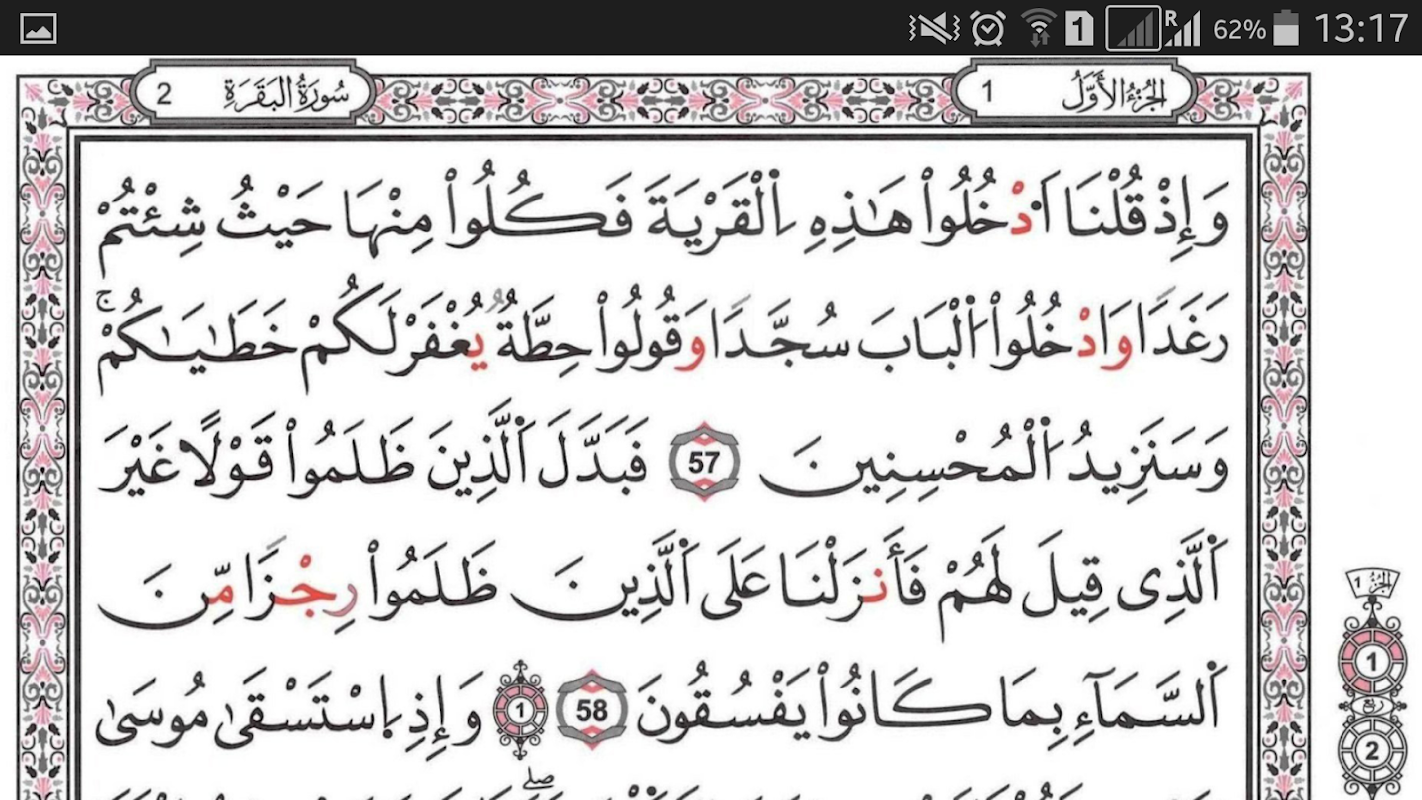 62% 13:17
الجزء الأول 1
سورة البقرة 2
وَإِذْ قُلْنَا اَ۟دْخُلُواْ هَٰذِهِ اِ۬لْقَرْيَةَ فَكُلُواْ مِنْهَا حَيْثُ شِئْتُمْ
رَغَدًا وَادْخُلُواْ اُ۬لْبَابَ سُجَّدًا وَقُولُواْ حِطَّةٌ يُغْفَرْ لَكُمْ خَطَٰيَٰكُمْۚ
وَسَنَزِيدُ اُ۬لْمُحْسِنِينَ 57 فَبَدَّلَ اَ۬لَّذِينَ ظَلَمُواْ قَوْلًا غَيْرَ
اَ۬لَّذِى قِيلَ لَهُمْ فَأَنزَلْنَا عَلَى اَ۬لَّذِينَ ظَلَمُواْ رِجْزًا مِّنَ
اَ۬لسَّمَآءِ بِمَا كَانُواْ يَفْسُقُونَ 58 1 وَإِذِ اِ۪سْتَسْقَىٰ مُوسَىٰ
الجزء 1
1
ربع
2